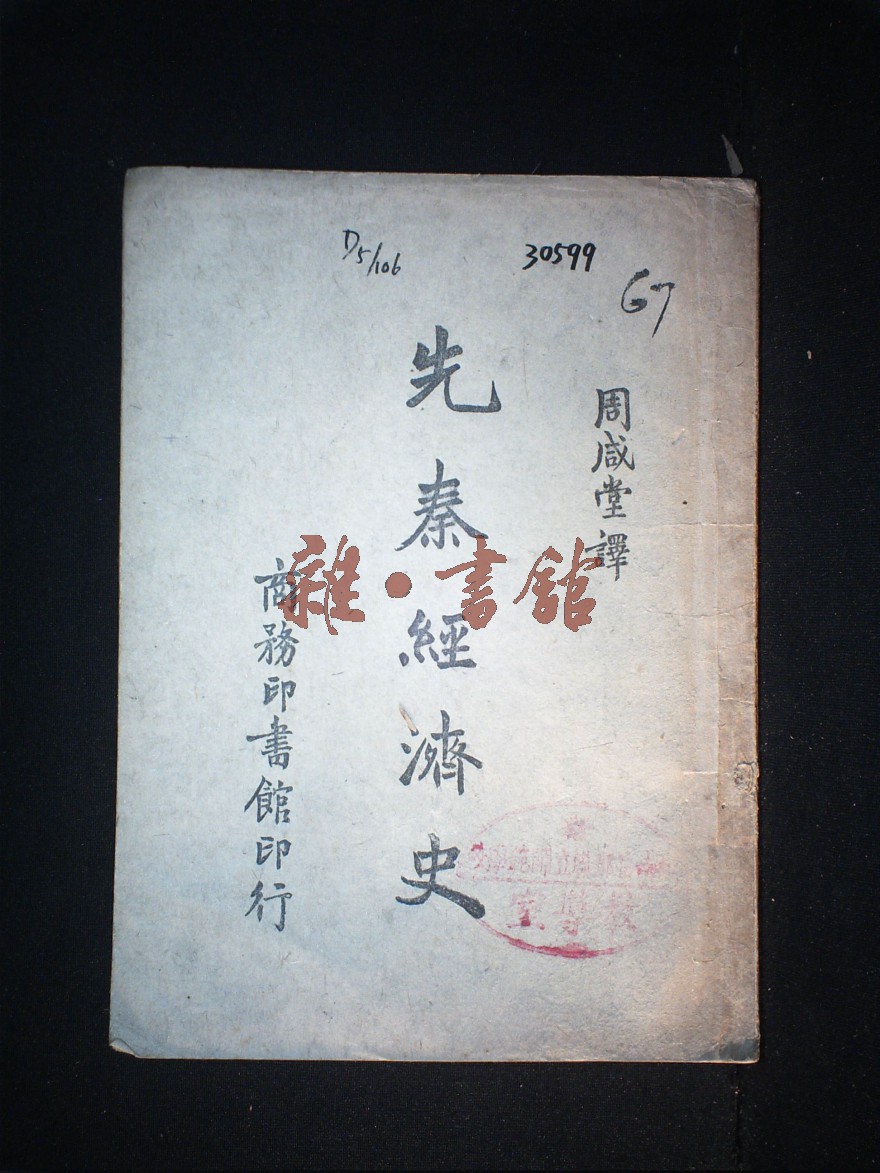 D5/106
30599
G7
周咸堂譯
先秦經濟史
商務印書館印行
雜·書館